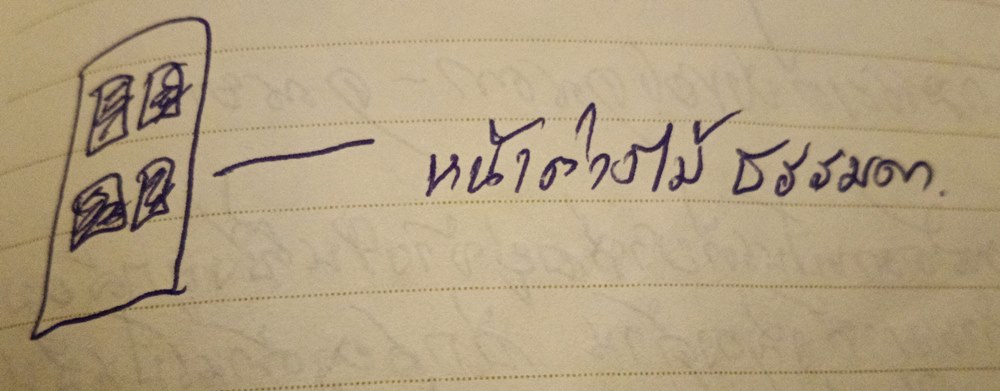 หน้าต่างไม้ ธรรมดา.